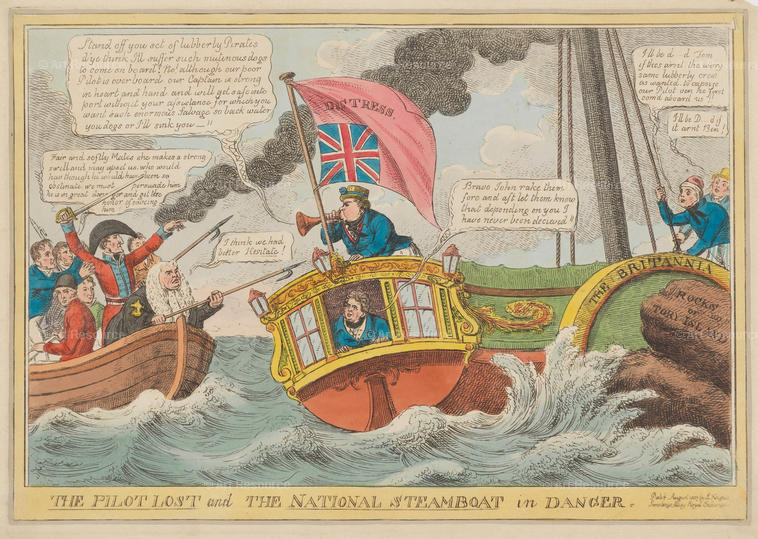 Stand off you set of lubberly Pirates
d'ye think I'll suffer such mutinous dogs
to come on board! No! although our poor
Pilot is overboard our Captain is strong
in heart and hand and will get safe into
port without your assistance for which you
want such enormous Salvage so back water
you dogs or I'll sink you — !!
Fair and softly Mates she makes a strong
swell and may upset us, who would
have thought he would have been so
obstinate we must persuade him
he is in great danger and get the
honor of saving
him
I think we had
better Hesitate!
DISTRESS.
Bravo John rake them
fore and aft let them know
that depending on you I
have never been decieved!!
I'll be d—d Tom
if thes arnt the very
same lubberly crew
as wanted to capsize
our Pilot ven he first
com'd aboard us!!
I'll be D... d if
it arnt Ben!
THE BRITANNIA
ROCKS
OF
TORY ISLAND
THE PILOT LOST and THE NATIONAL STEAMBOAT in DANGER.
Pub'd August 1827 by S. Knight
Sweetings Alley Royal Exchange
Art Resource